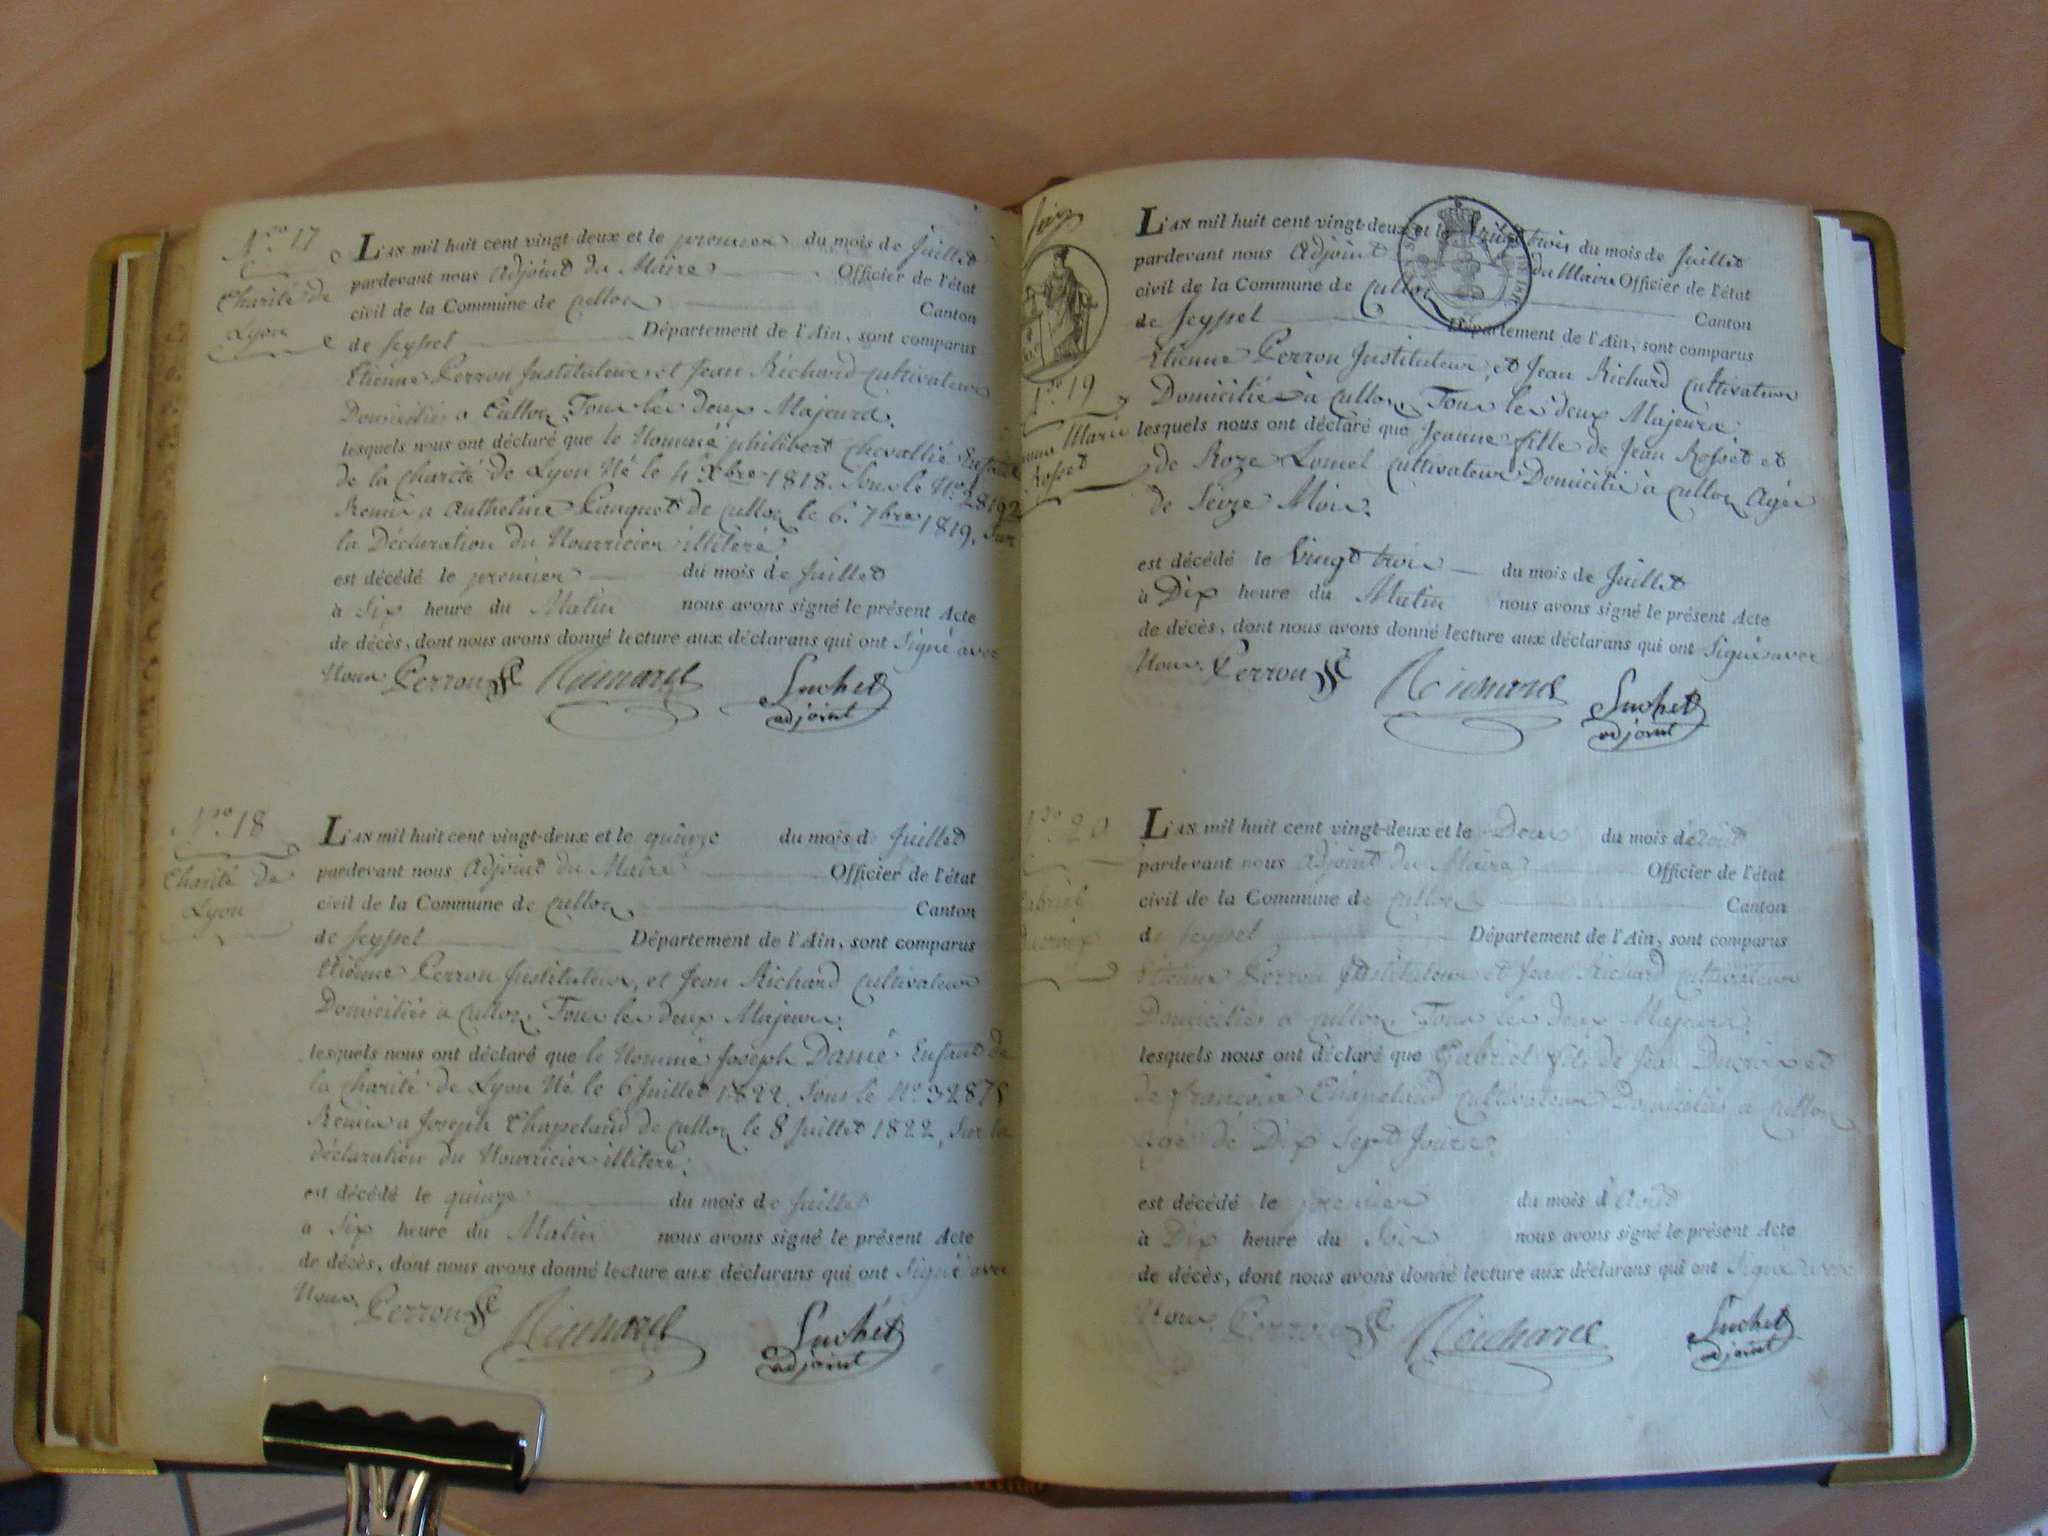 N.ro 17
Charité de
Lyon
L'AN mil huit cent vingt-deux et le premier du mois de Juillet
pardevant nous Adjoint du Maire Officier de l'état
civil de la Commune de Culloz Canton
de Seyssel Département de l'Ain, sont comparus
Etienne Perron Instituteur, et Jean Richard cultivateur
Domiciliés a Culloz, Tous les deux Majeurs.
lesquels nous ont déclaré que le Nommé philibert Chevallié Enfant
de la Charité de Lyon Né le 4 Xbre 1818. Sous le N.o 28192
Remis a Anthelme Panquet de Culloz le 6. 7bre 1819. Sur
la Déclaration du Nourricier illiteré
est décédé le premier du mois de Juillet
à Six heure du Matin nous avons signé le présent Acte
de décès, dont nous avons donné lecture aux déclarans qui ont Signé avec
Nous. Perron Richard Suchet
adjoint
N.ro 18
Charité de
Lyon
L'AN mil huit cent vingt-deux et le quinze du mois de Juillet
pardevant nous Adjoint du Maire Officier de l'état
civil de la Commune de Culloz Canton
de Seyssel Département de l'Ain, sont comparus
Etienne Perron Instituteur, et Jean Richard cultivateur
Domiciliés a Culloz, Tous les deux Majeurs.
lesquels nous ont déclaré que le Nommé Joseph Damé Enfant de
la Charité de Lyon Né le 6 Juillet 1822. Sous le N.o 32875
Remis a Joseph Chapeland de Culloz le 8 Juillet 1822, Sur la
déclaration du Nourricier illiteré.
est décédé le quinze du mois de Juillet
à Six heure du Matin nous avons signé le présent Acte
de décès, dont nous avons donné lecture aux déclarans qui ont Signé avec
Nous. Perron Richard Suchet
adjoint
N.ro 19
Marie
Rosset
L'AN mil huit cent vingt-deux et le Vingt trois du mois de Juillet
pardevant nous Adjoint du Maire Officier de l'état
civil de la Commune de Culloz Canton
de Seyssel Département de l'Ain, sont comparus
Etienne Perron Instituteur, et Jean Richard cultivateur
Domiciliés à Culloz, Tous les deux Majeurs
lesquels nous ont déclaré que Jeanne fille de Jean Rosset et
de Roze Lomel cultivateurs Domiciliés à Culloz Agée
de Seize Mois.
est décédé le Vingt trois du mois de Juillet
à Dix heure du Matin nous avons signé le présent Acte
de décès, dont nous avons donné lecture aux déclarans qui ont Signé avec
Nous. Perron Richard Suchet
adjoint
N.ro 20
Gabriel
Ducroix
L'AN mil huit cent vingt-deux et le Deux du mois d'Août
pardevant nous Adjoint du Maire Officier de l'état
civil de la Commune de Culloz Canton
de Seyssel Département de l'Ain, sont comparus
Etienne Perron Instituteur et Jean Richard cultivateur
Domiciliés a Culloz, Tous les deux Majeurs.
lesquels nous ont déclaré que Gabriel fils de Jean Ducroix et
de françoise Chapeland cultivateurs Domiciliés a Culloz
agé de Dix Sept Jours.
est décédé le premier du mois d'Août
à Dix heure du Soir nous avons signé le présent Acte
de décès, dont nous avons donné lecture aux déclarans qui ont Signé avec
Nous. Perron Richard Suchet
adjoint